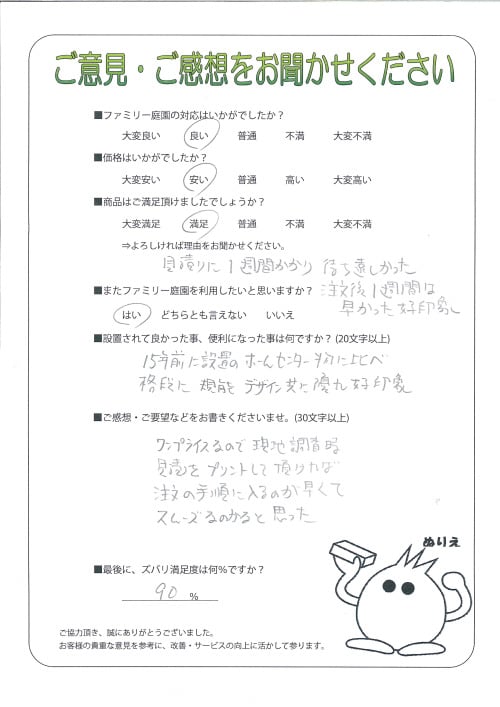 ご意見・ご感想をお聞かせください
■ファミリー庭園の対応はいかがでしたか？
大変良い 良い 普通 不満 大変不満
■価格はいかがでしたか？
大変安い 安い 普通 高い 大変高い
■商品はご満足頂けましたでしょうか？
大変満足 満足 普通 不満 大変不満
⇒よろしければ理由をお聞かせください。
見積りに1週間かかり 待ち遠しかった
注文後1週間は
早かった好印象
■またファミリー庭園を利用したいと思いますか？
はい どちらとも言えない いいえ
■設置されて良かった事、便利になった事は何ですか？(20文字以上)
15年前に設置のホームセンター物に比べ
格段に 機能 デザイン共に優れ好印象
■ご感想・ご要望などをお書きくださいませ。(30文字以上)
ワンプライスなので現地調査時
見積をプリントして頂ければ
注文の手順に入るのが早くて
スムーズなのかなと思った
ぬりえ
■最後に、ズバリ満足度は何％ですか？
90 %
ご協力頂き、誠にありがとうございました。
お客様の貴重な意見を参考に、改善・サービスの向上に活かして参ります。